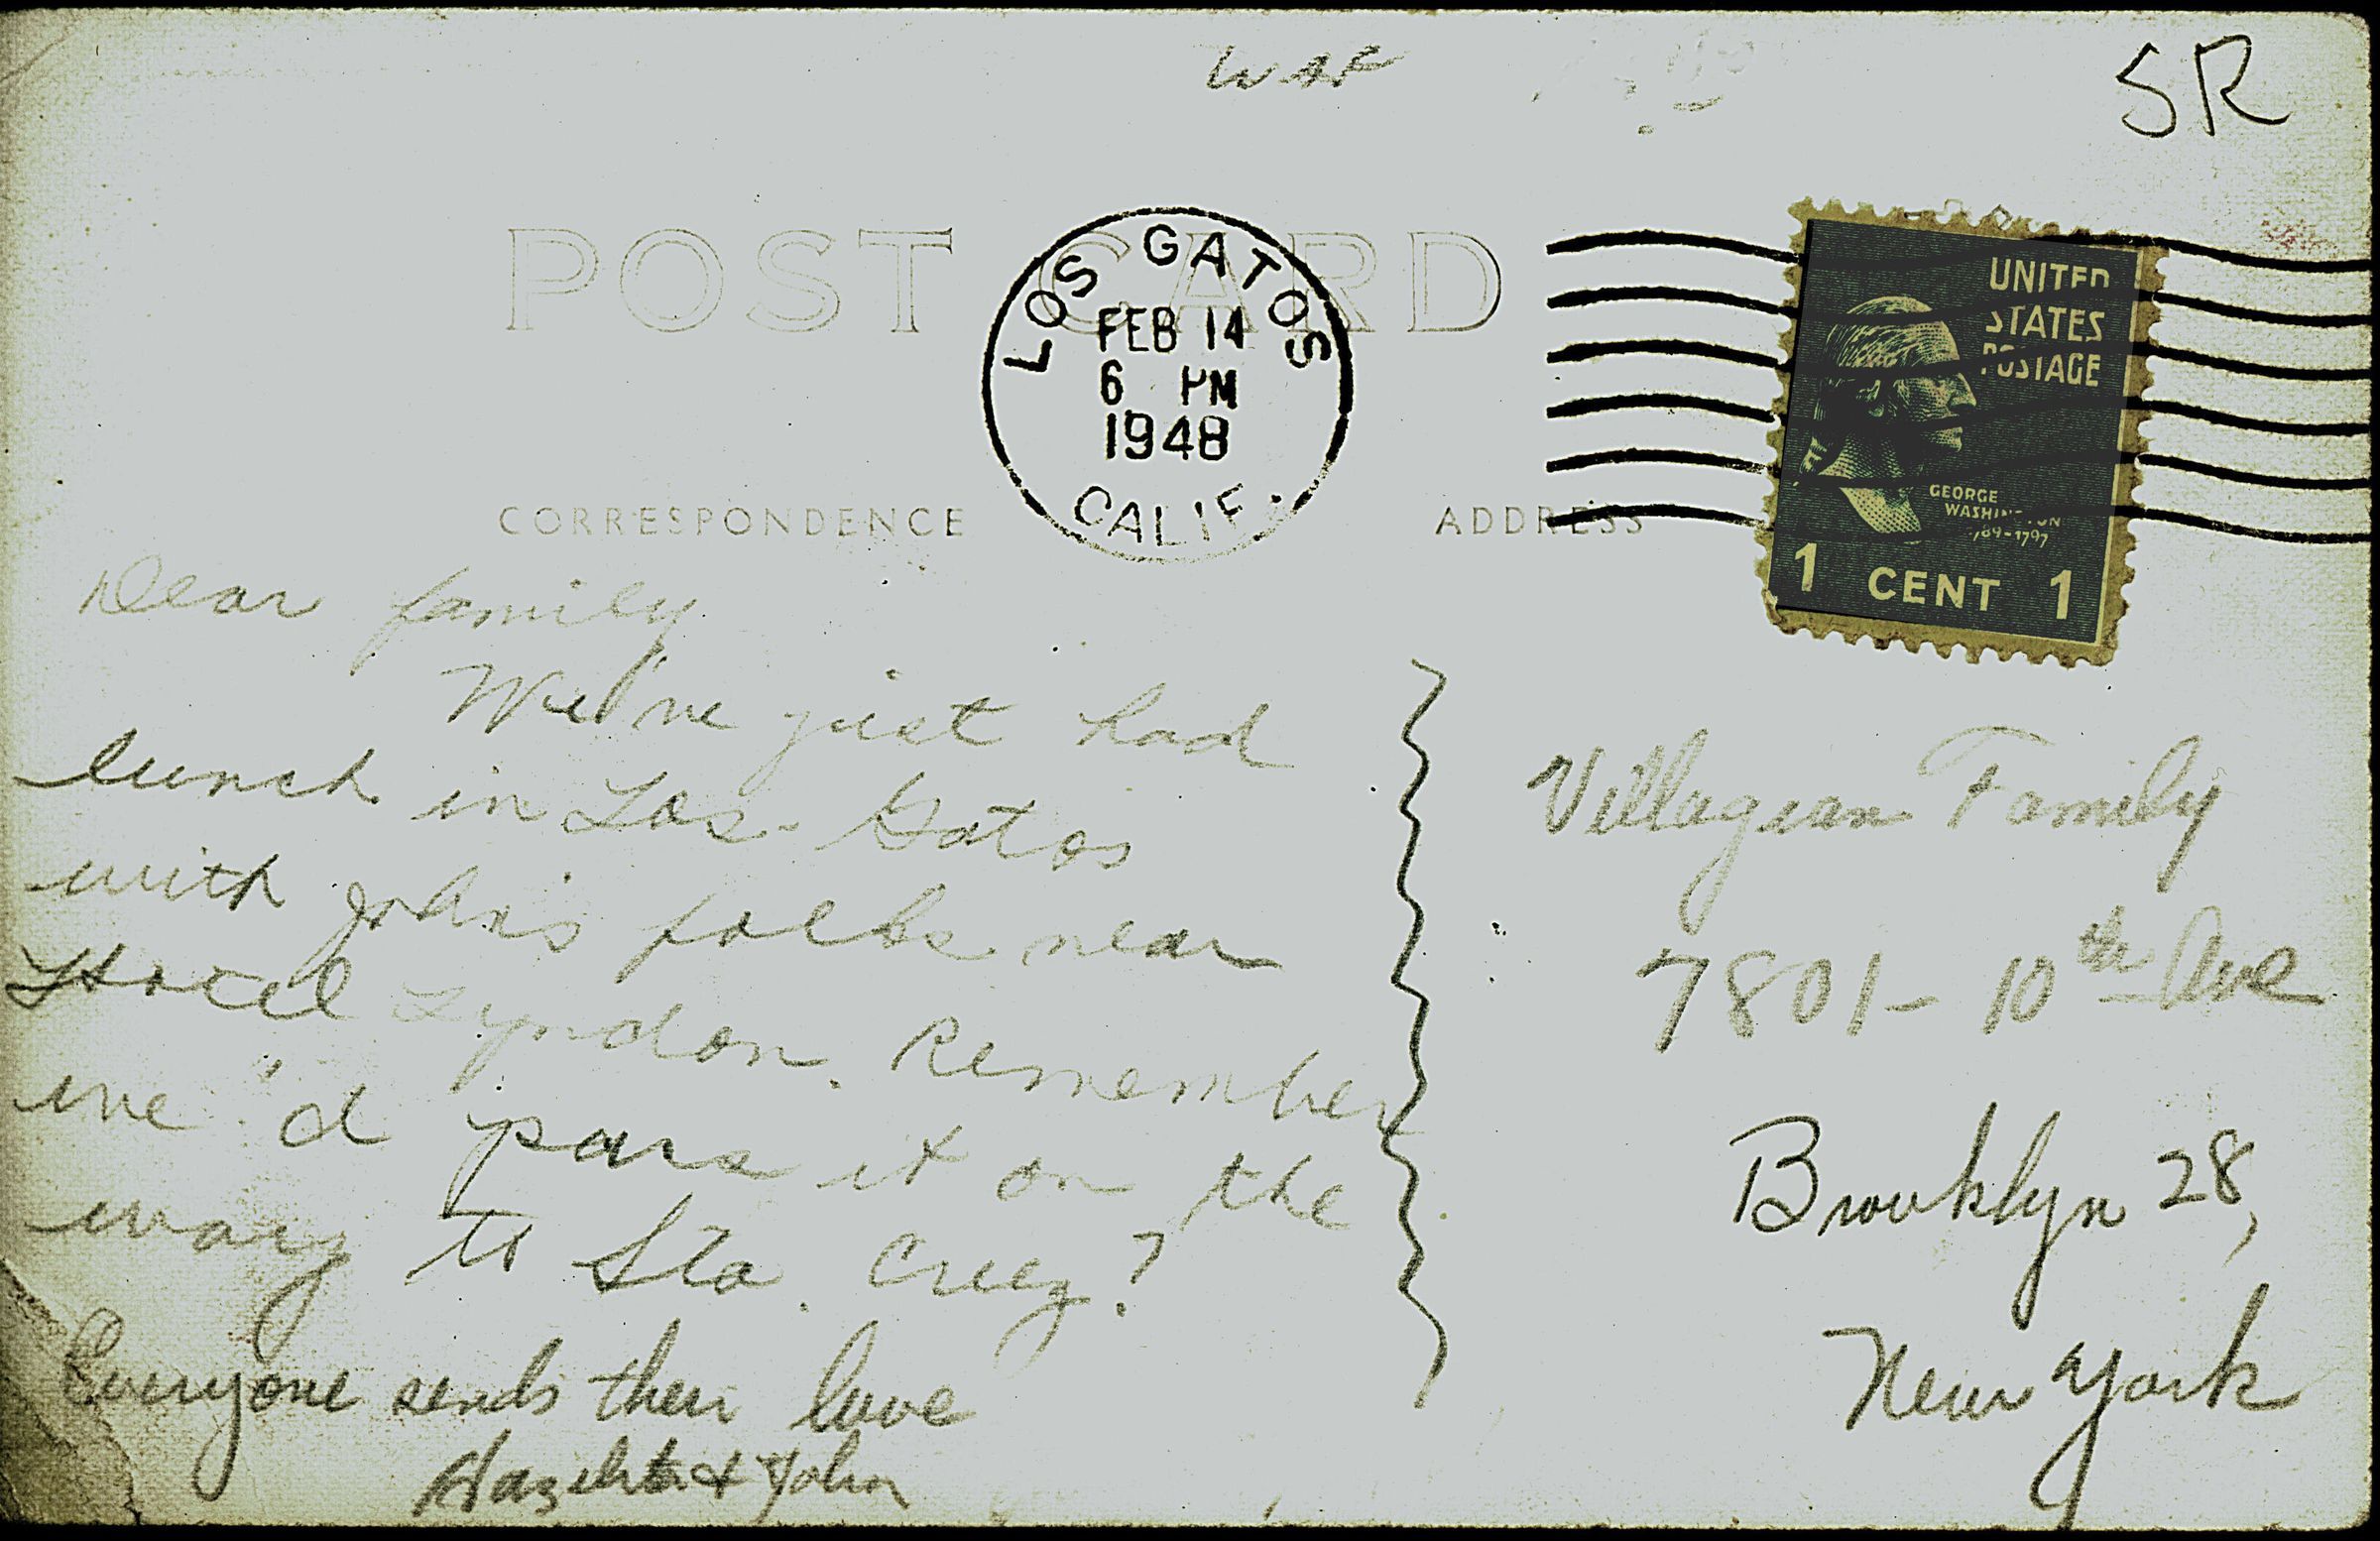 SR
POST CARD
LOS GATOS
FEB 14
6 PM
1948
CALIF.
UNITED
STATES
POSTAGE
GEORGE
WASHINGTON
1789-1797
1 CENT 1
CORRESPONDENCE
ADDRESS
Dear family
We've just had
lunch in Los-Gatos
with John's folks near
Hotel Lyndon. Remember
we'd pass it on the
way to Sta. Cruz?
Everyone sends their love
& John
Family
7801- 10th Ave
Brooklyn 28,
New York